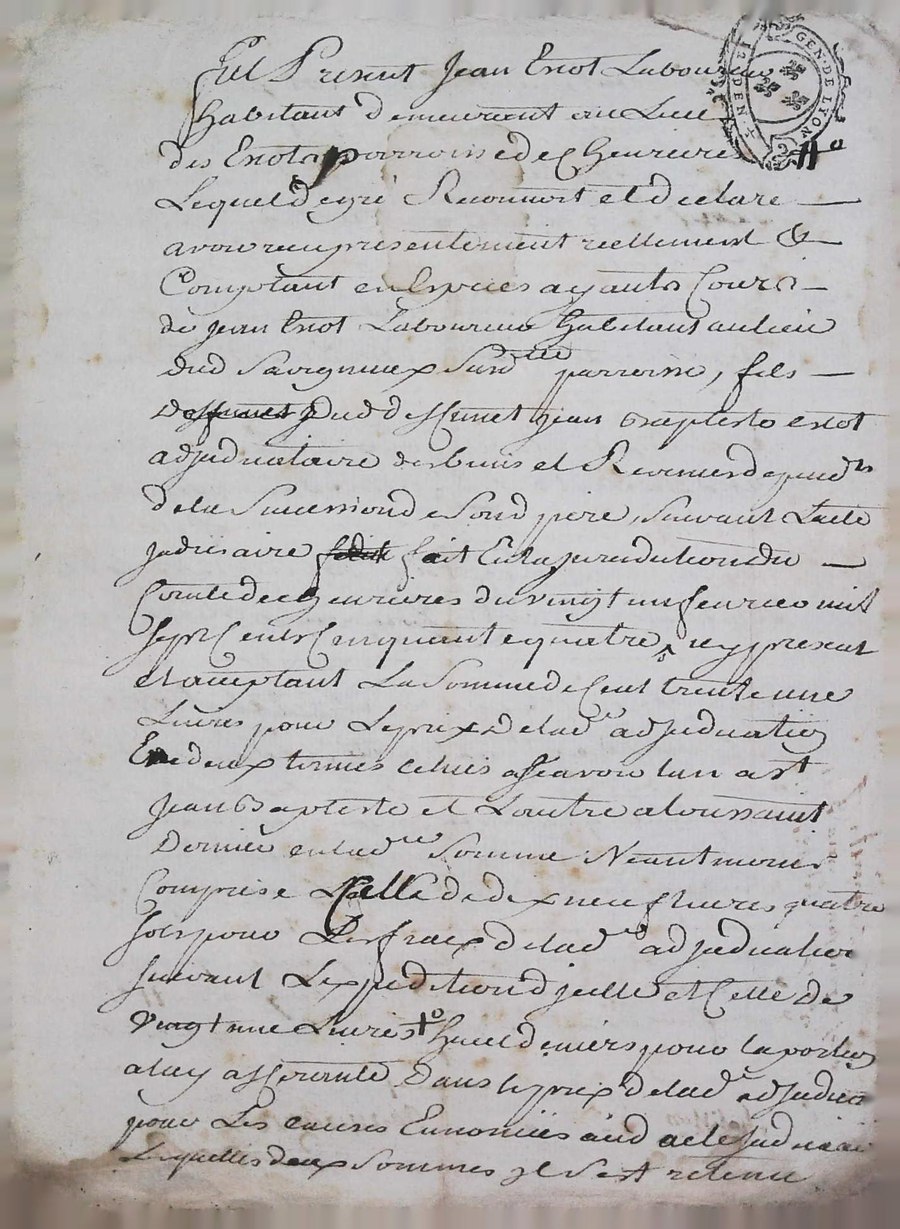 GEN. DE LYON
Fut Present Jean Enot Laboureur
habitant demeurant au Lieu
des Enots parroisse de Chevrieres
Lequel de gré Reconnoit et declare
avoir reçu presentement reellement &
Comptant en Espeices ayants Cours
de Jean Enot Laboureur habitant au lieu
du d Savigneux Susd tte parroisse, fils
du d deffunet jean Baptiste enot
adjudicataire des biens et Revenus depend ts
de la Succession de Sond pere, Suivant Lacte
judiciaire fait En la jurisdiction du
Comté de Chevrieres du vingt un fevrier mil
Sept Cents Cinquante quatre, icy present
et acceptant La Somme de Cent trente une
Livres pour Le prix de lad e adjudication
En deux termes echus assavoir lun a st
Jean Baptiste et Lautre a toussaint
Dernier en lad te Somme Neantmoins
Comprise Celle de dix neuf livres quatre
Sols pour Les fraix de lad e adjudication
suivant Lexpedition d'jcelle et Celle de
vingt une Livres huit deniers pour la portion
a luy afferante Dans le prix de lad e adjudica
pour Les causes Enoncées aud acte Judiciaire
Lesquelles deux Sommes jl S'est retenu